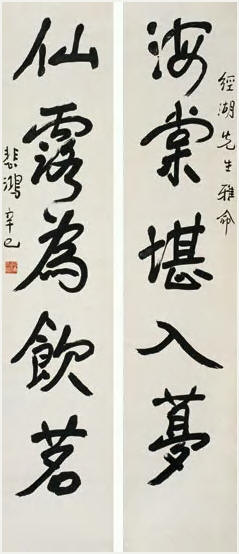 經湖先生雅命
海棠堪入夢
仙露為飲茗
悲鴻 辛巳